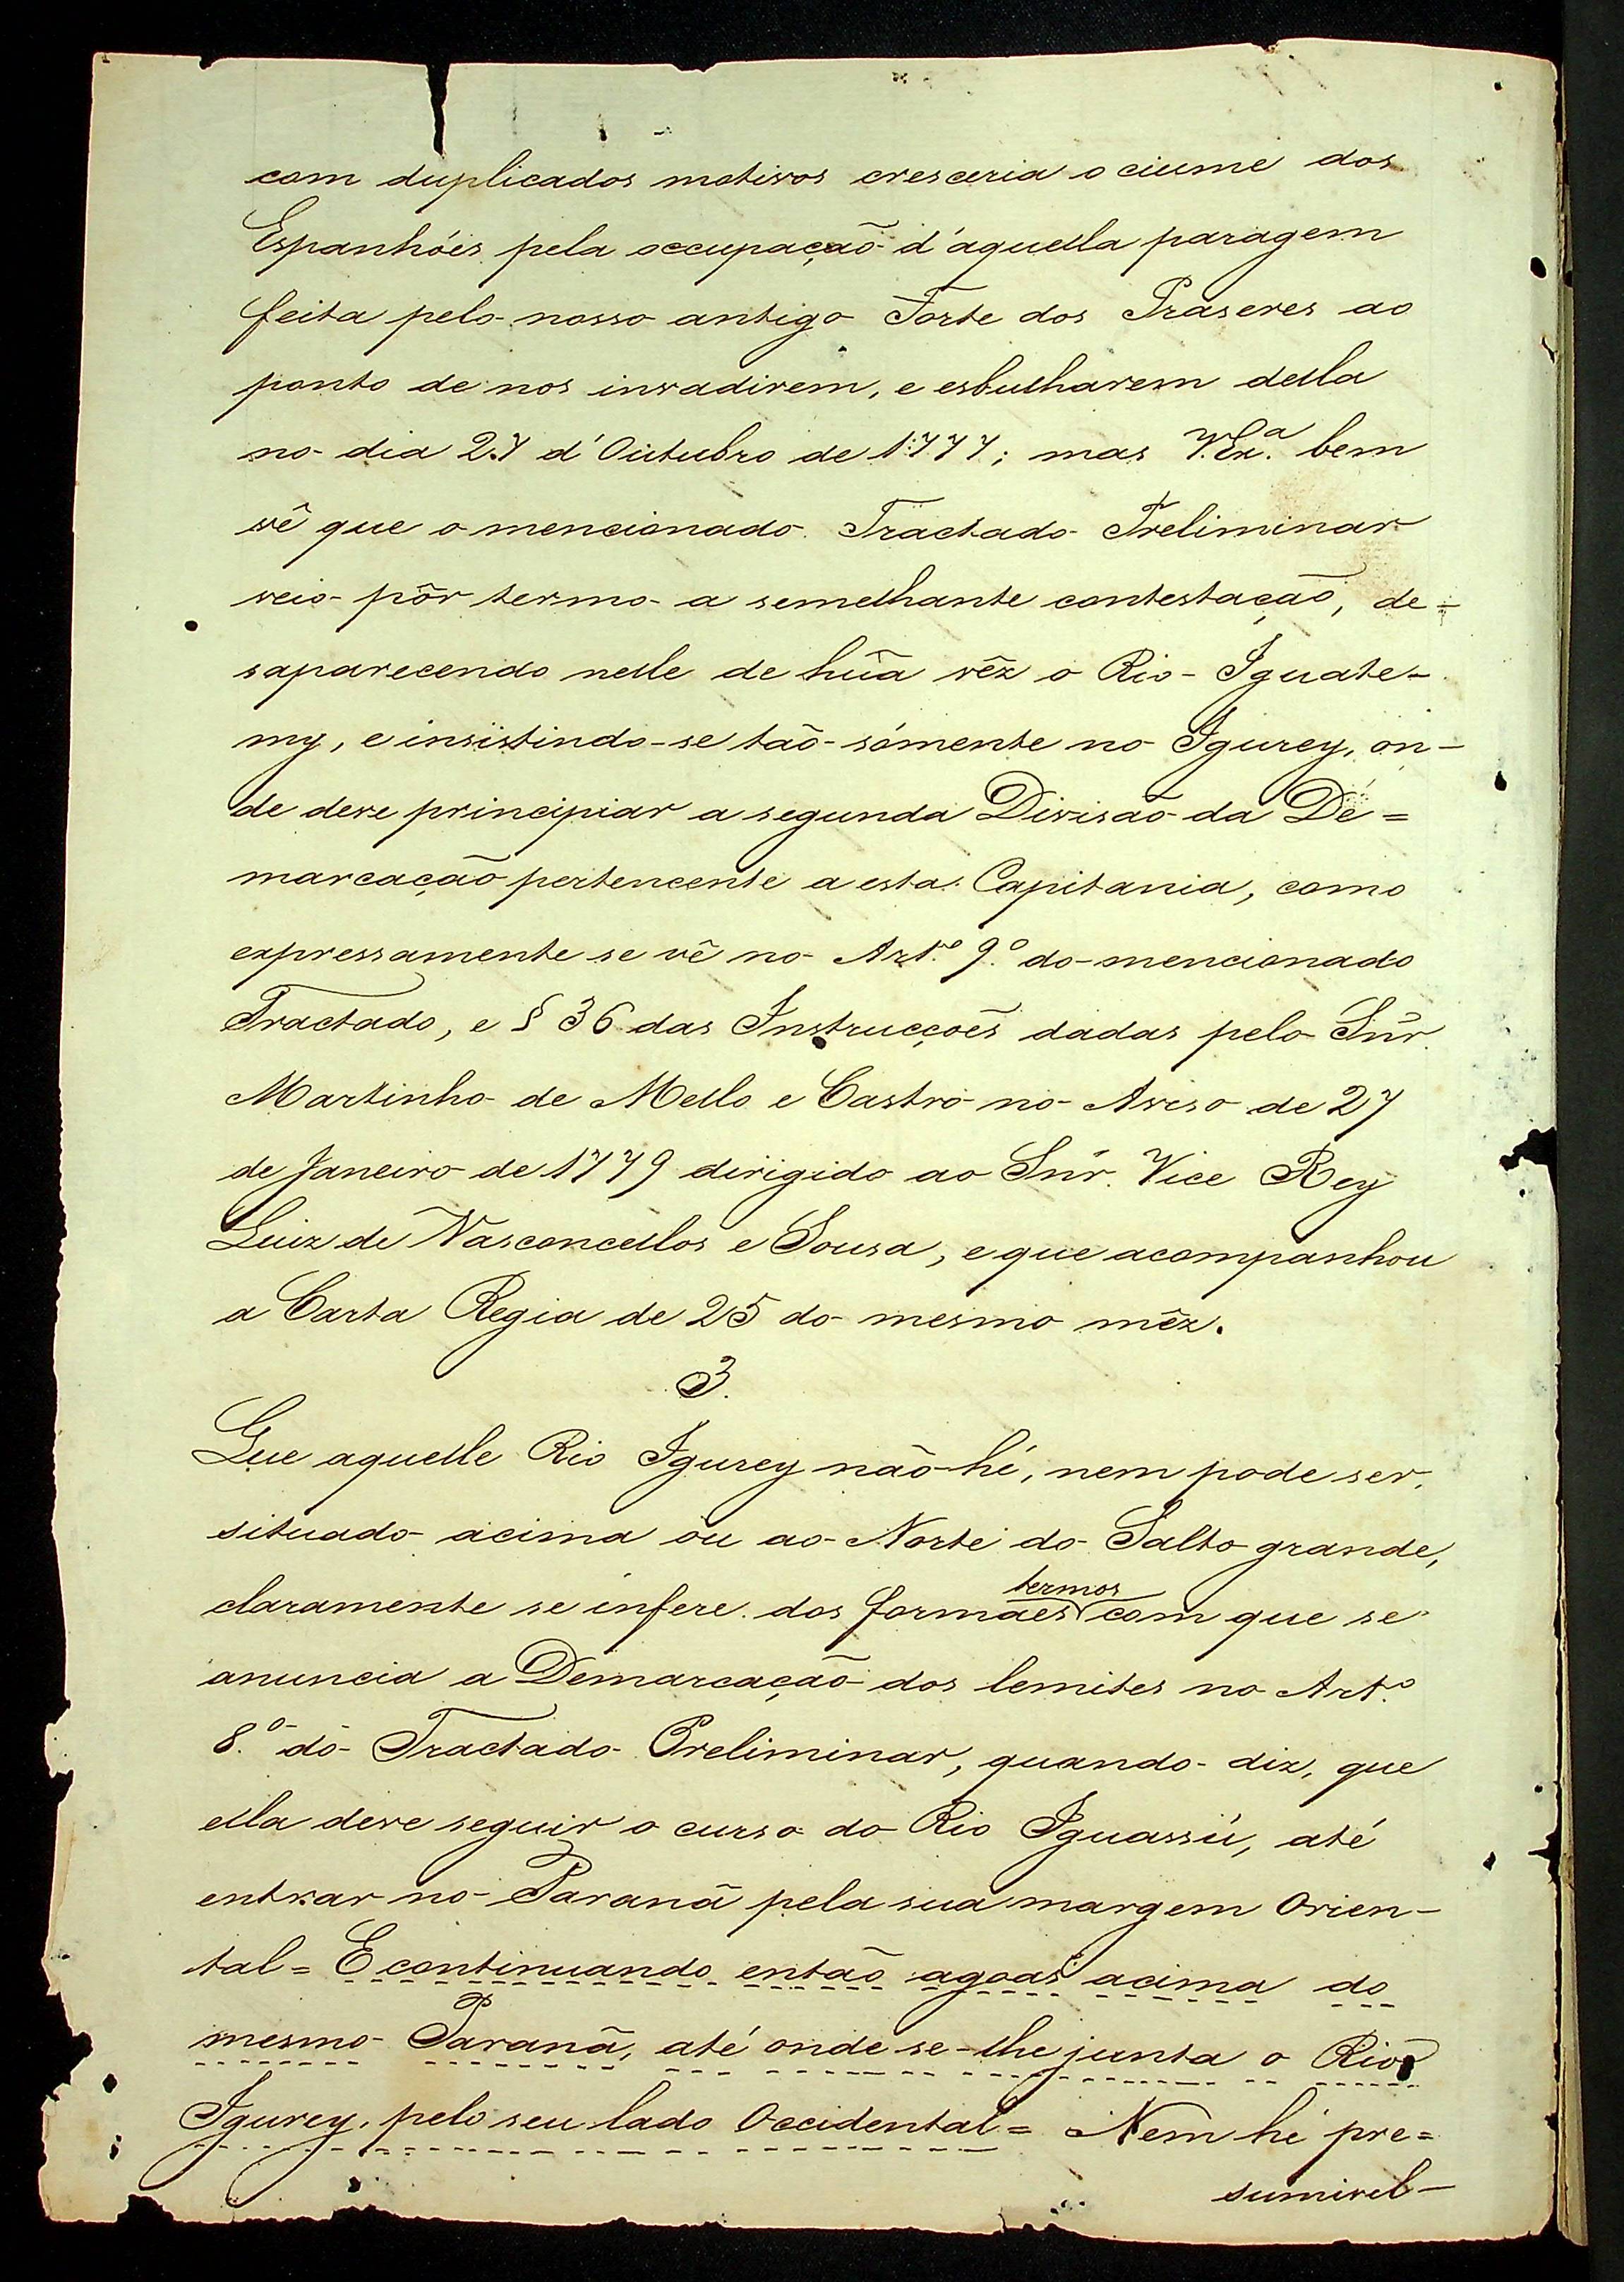 com duplicados motivos cresceria o ciume dos
Espanhóes pela occupação d'aquella paragem
feita pelo nosso antigo Forte dos Praseres ao
ponto de nos invadirem, e esbulharem della
no dia 27 d'Outubro de 1777; mas V. Ex.ª bem
vê que o mencionado Tractado Preliminar
veio pôr termo a semelhante contestação, de-
saparecendo nelle de hũa vêz o Rio Iguate-
my, e insistindo-se tão-sómente no Igurey, on-
de deve principiar a segunda Divisão da De=
marcação pertencente a esta Capitania, como
expressamente se vê no Art.º 9.º do mencionado
Tractado, e § 36 das Instrucções dadas pelo Sñr.
Martinho de Mello e Castro no Aviso de 27
de Janeiro de 1779 dirigido ao Sñr. Vice Rey
Luiz de Vasconcellos e Sousa, e que acompanhou
a Carta Regia de 25 do mesmo mêz.
3.
Que aquelle Rio Igurey não hé, nem pode ser,
situado acima ou ao Norte do Salto grande,
claramente se infere dos formaes termos com que se
anuncia a Demarcação dos lemites no Art.º
8.º do Tractado Preliminar, quando diz, que
ella deve seguir o curso do Rio Iguassú, até
entrar no Paranã pela sua margem Orien-
tal = E continuando então agoas acima do
mesmo Paranã, até onde se-lhe junta o Rio
Igurey, pelo seu lado Occidental = Nem hé pre=
sumivel-